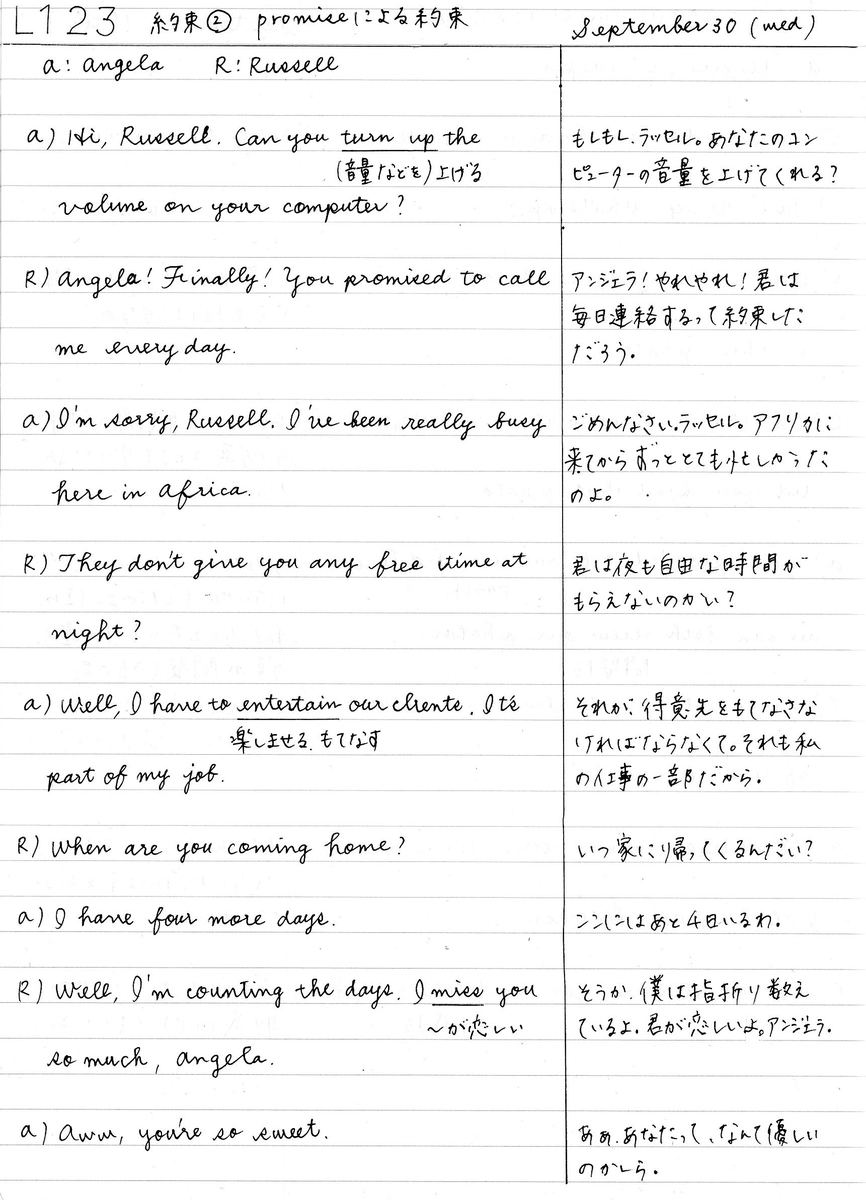 L123 約束② promiseによる約束 September 30 (wed)
a: angela R: Russell
a) Hi, Russell. Can you turn up the
(音量などを)上げる
volume on your computer?
もしもし、ラッセル。あなたのコン
ピューターの音量を上げてくれる?
R) Angela! Finally! You promised to call
me every day.
アンジェラ!やれやれ!君は
毎日連絡するって約束した
だろう。
a) I'm sorry, Russell. I've been really busy
here in Africa.
ごめんなさい。ラッセル。アフリカに
来てからずっととても忙しかった
のよ。
R) They don't give you any free time at
night?
君は夜も自由な時間が
もらえないのかい?
a) Well, I have to entertain our clients. It's
楽しませる、もてなす
part of my job.
それが、得意先をもてなさな
ければならなくて。それも私
の仕事の一部だから。
R) When are you coming home?
いつ家に帰ってくるんだい?
a) I have four more days.
ここにはあと4日いるわ。
R) Well, I'm counting the days. I miss you
~が恋しい
so much, angela.
そうか、僕は指折り数え
ているよ。君が恋しいよ。アンジェラ。
a) Aww, you're so sweet.
あぁ、あなたって、なんて優しい
のかしら。